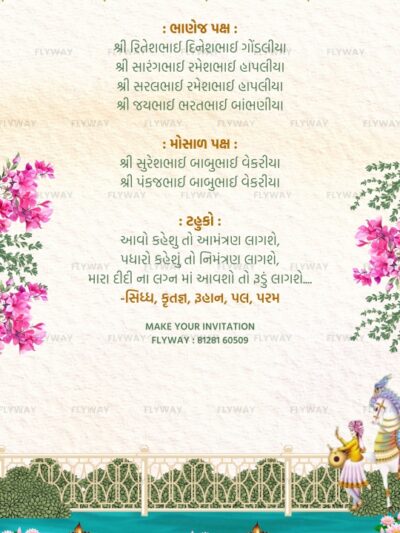 : ભાણેજ પક્ષ :
શ્રી રિતેશભાઈ દિનેશભાઈ ગોંડલીયા
શ્રી સારંગભાઈ રમેશભાઈ હાપલીયા
શ્રી સરલભાઈ રમેશભાઈ હાપલીયા
શ્રી જયભાઈ ભરતભાઈ બાંભણીયા
: મોસાળ પક્ષ :
શ્રી સુરેશભાઈ બાબુભાઈ વેકરીયા
શ્રી પંકજભાઈ બાબુભાઈ વેકરીયા
: ટહુકો :
આવો કહેશું તો આમંત્રણ લાગશે,
પધારો કહેશું તો નિમંત્રણ લાગશે,
મારા દીદી ના લગ્ન માં આવશો તો રૂડું લાગશે....
-સિધ્ધ, કૃતજ્ઞ, રૂહાન, પલ, પરમ
MAKE YOUR INVITATION
FLYWAY : 81281 60509
FLYWAY